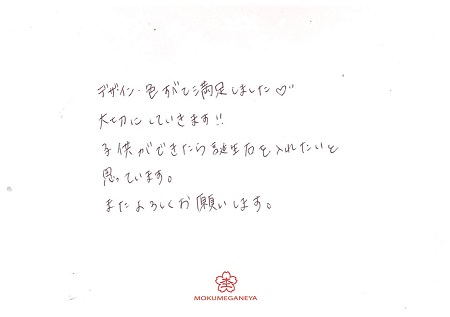 デザイン・色すべて満足しました♡
大切にしていきます!!
子供ができたら誕生石を入れたいと
思っています。
またよろしくお願いします。
杢
MOKUMEGANEYA